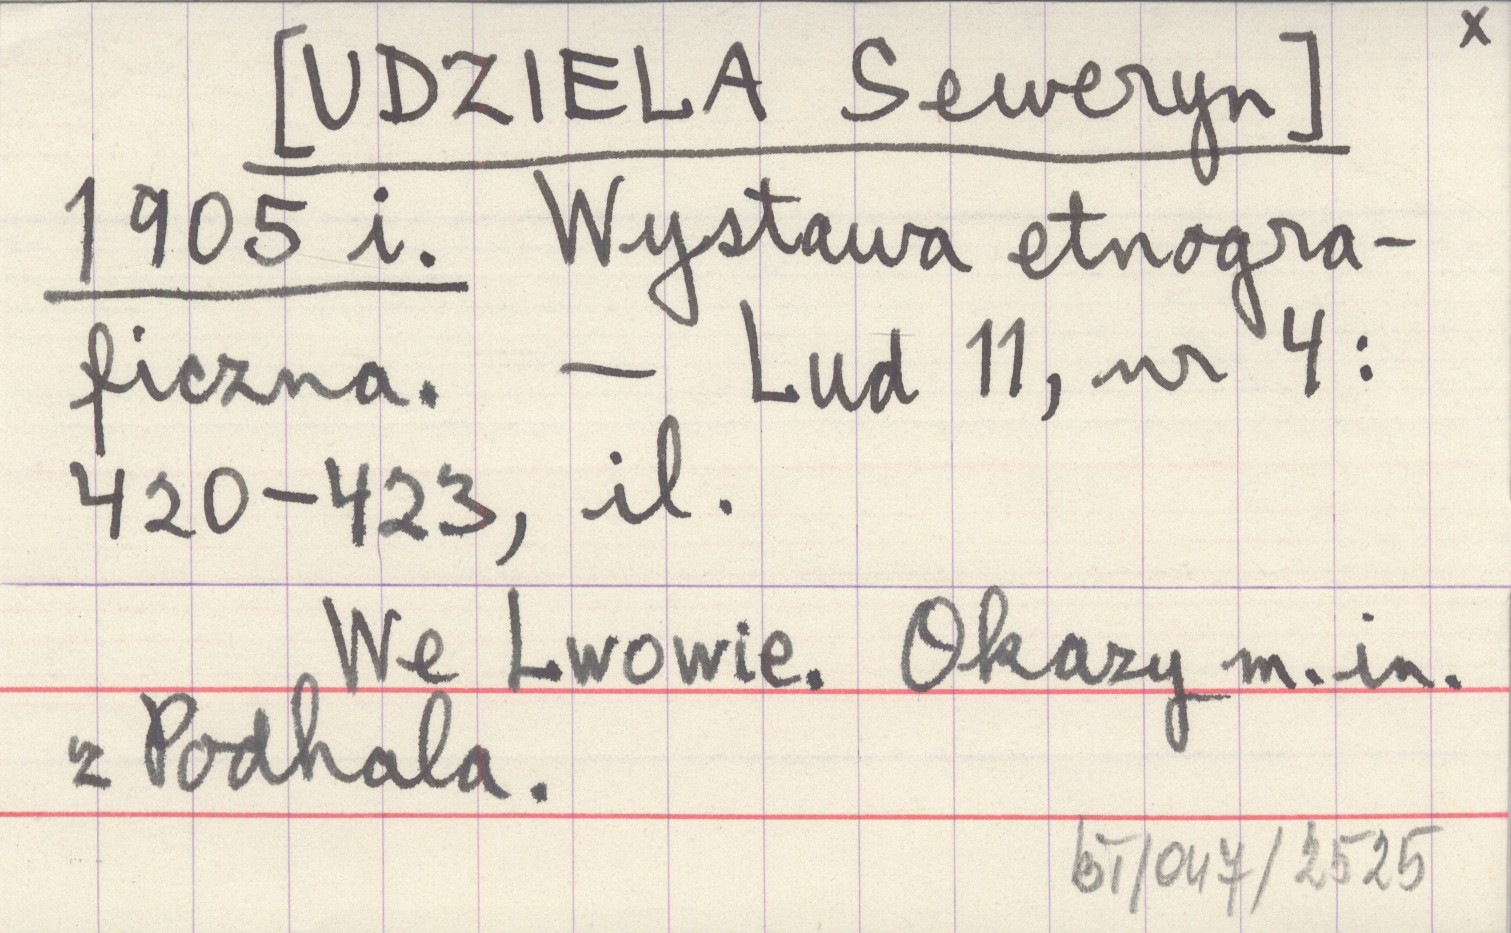 x
[UDZIELA Seweryn]
1905 i. Wystawa etnogra-
ficzna. — Lud 11, nr 4:
420-423, il.
We Lwowie. Okazy m.in.
z Podhala.
/047/2525